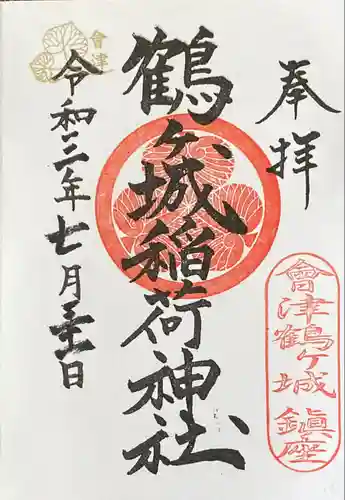 奉拝
會津鶴ヶ城鎭座
鶴ヶ城稲荷神社
會津
令和三年七月三十一日